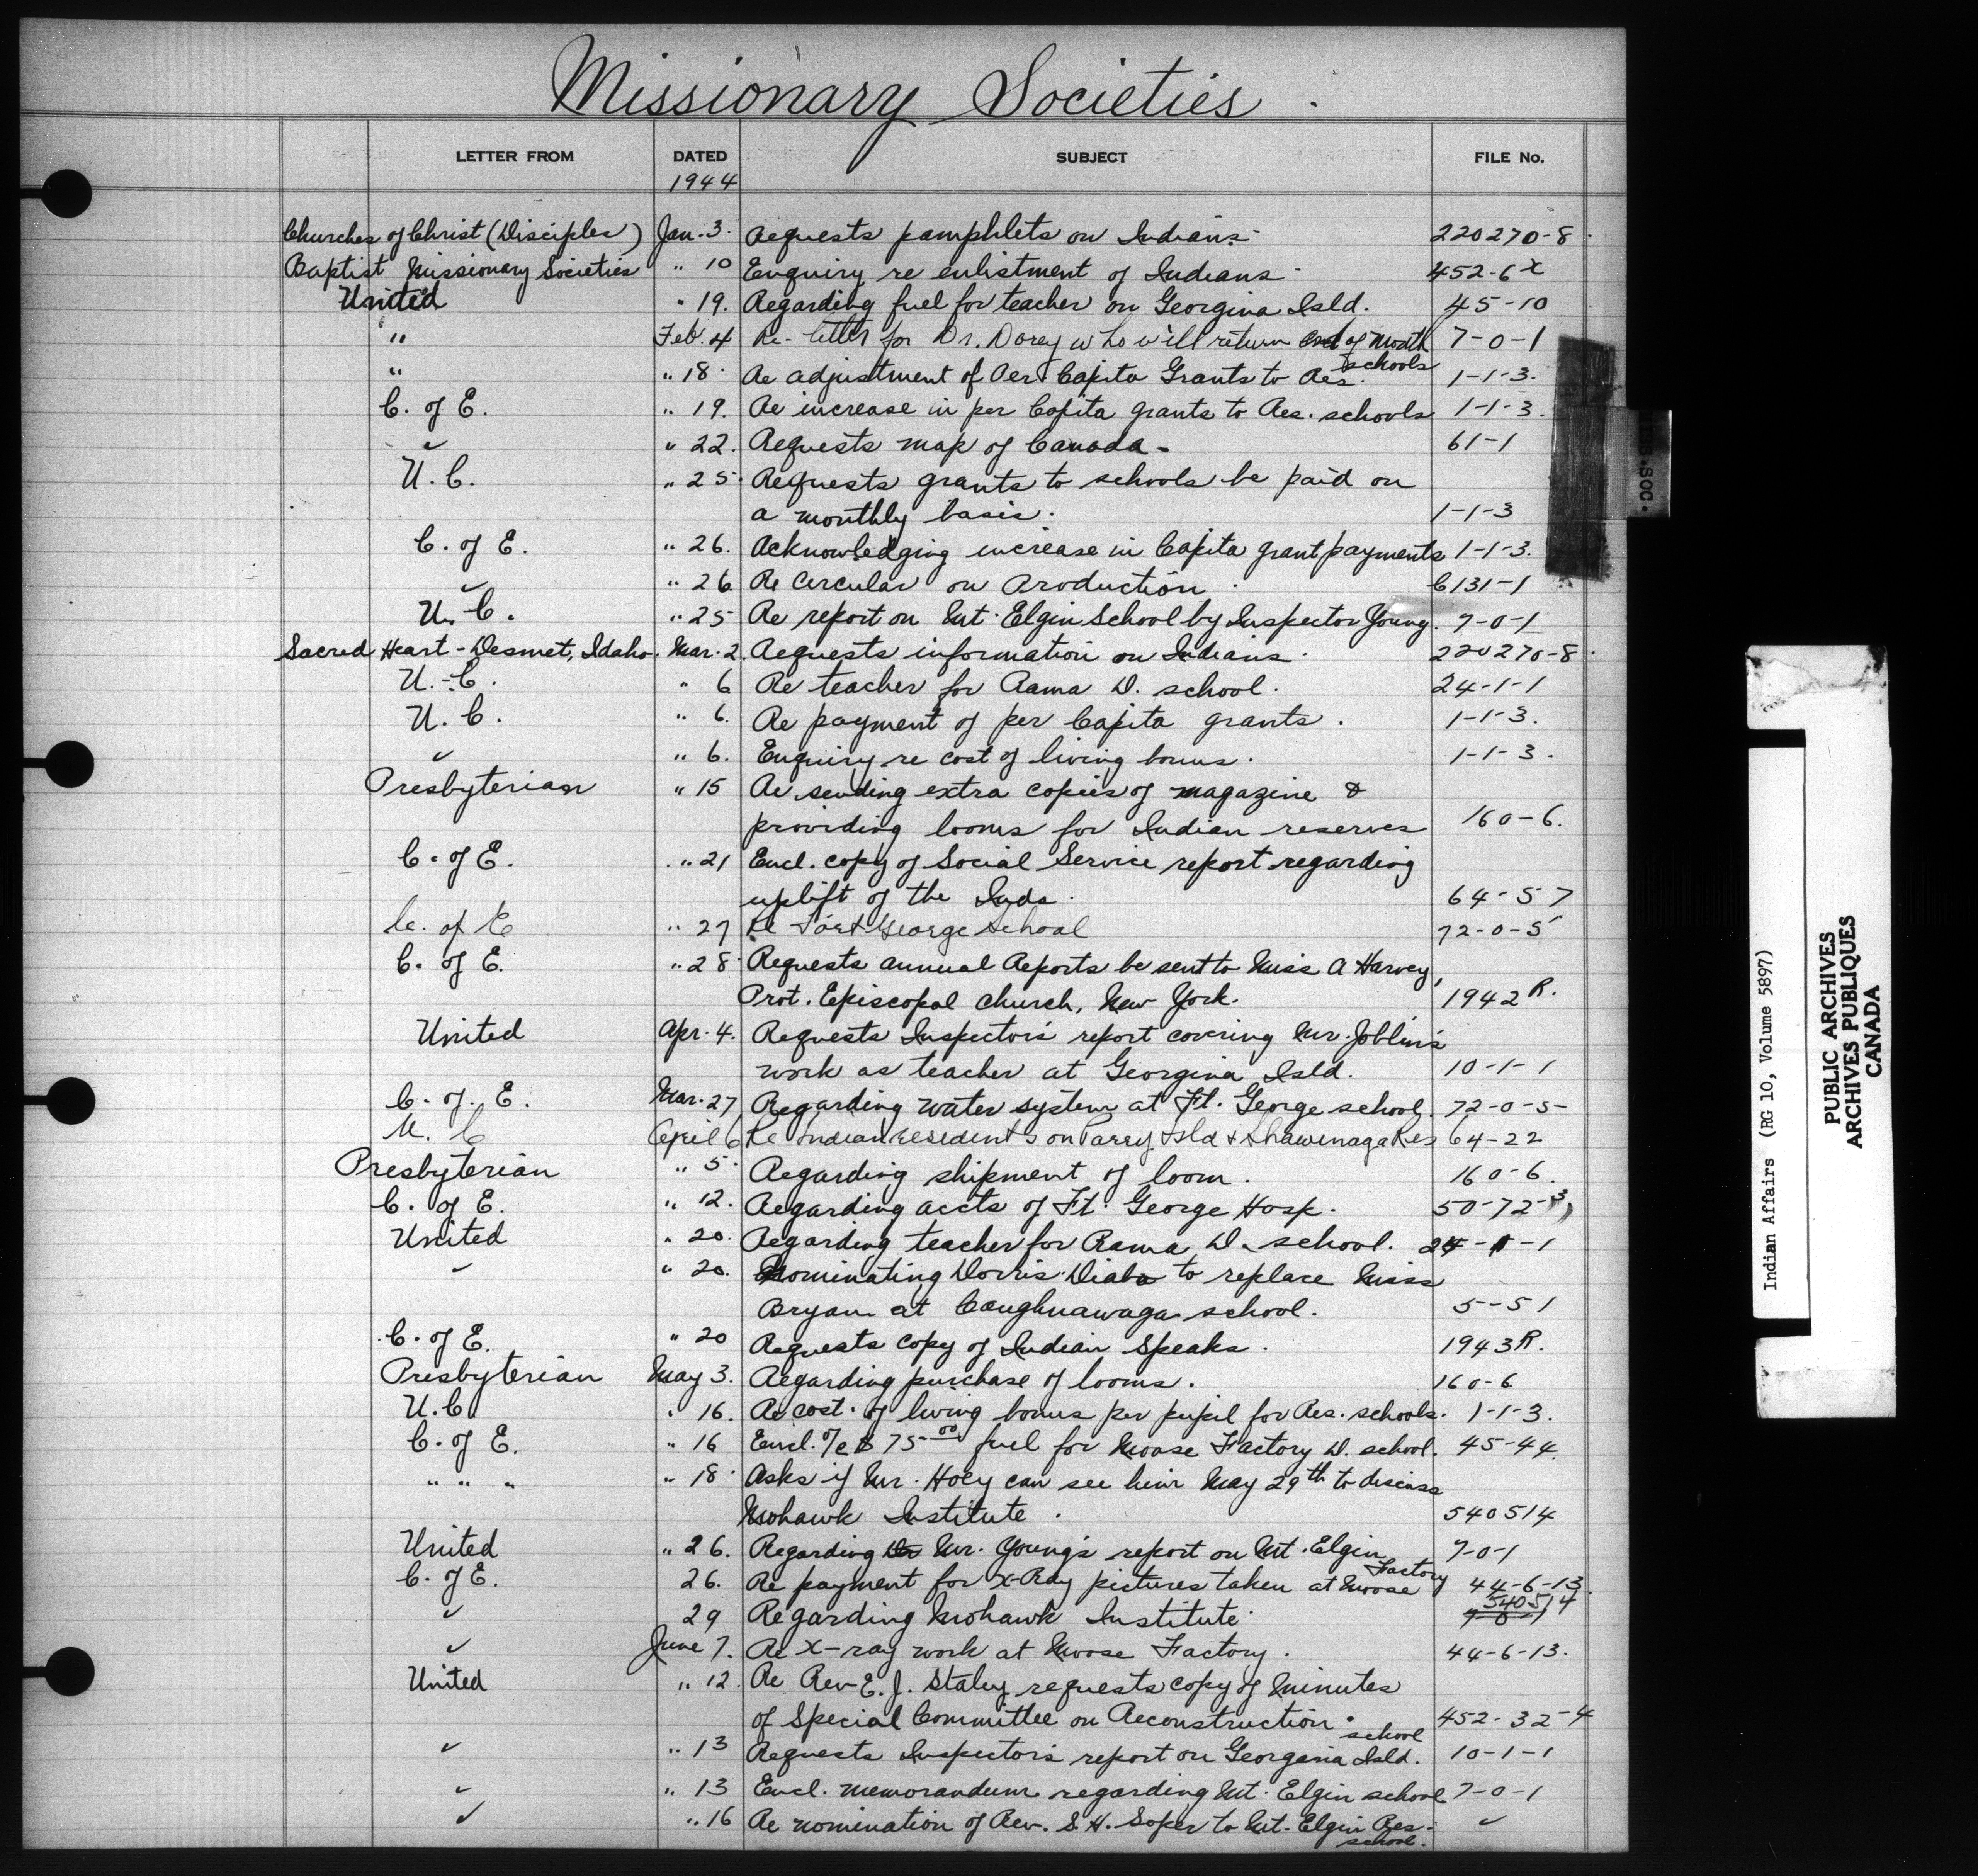 Missionary Societies
LETTER FROM DATED SUBJECT FILE No.
1944
Churches of Christ (Disciples) Jan. 3. Requests pamphlets on Indians 220270-8
Baptist Missionary Societies " 10 Enquiry re enlistment of Indians 452-6 X
United " 19. Regarding fuel for teacher on Georgina Isld. 45-10
" Feb. 4 Re- letter for Dr. Dorey who will return end of month 7-0-1
" " 18 Re adjustment of Per Capita Grants to Res. schools 1-1-3.
C. of E. " 19. Re increase in per Capita grants to Res. schools 1-1-3.
" " 22. Requests map of Canada - 61-1
U.C. " 25 Requests grants to schools be paid on
a monthly basis. 1-1-3
C. of E. " 26. Acknowledging increase in Capita grant payments 1-1-3.
" " 26 Re Circular on Production 6131-1
U.C. " 25 Re report on Mt. Elgin School by Inspector Young. 7-0-1
Sacred Heart - Desmet, Idaho. Mar. 2. Requests information on Indians 220270-8
U.-C. " 6 Re teacher for Rama D. school. 24-1-1
U.C. " 6. Re payment of per Capita grants. 1-1-3.
" " 6. Enquiry re cost of living bonus. 1-1-3.
Presbyterian " 15 Re sending extra copies of magazine &
providing looms for Indian reserves 160-6.
C. of E. " 21 Encl. copy of Social Service report regarding
uplift of the Inds. 64-57
C. of E " 27 Re Fort George School 72-0-5
C. of E. " 28 Requests annual Reports be sent to Miss A Harvey,
Prot. Episcopal church, New York. 1942 R.
United Apr. 4. Requests Inspector's report covering Mr. Joblin's
work as teacher at Georgina Isld. 10-1-1
C. of. E. Mar. 27 Regarding water system at Ft. George school. 72-0-5-
U. C April 6 Re Indian residents on Parry Isld & Shawenaga Res 64-22
Presbyterian " 5 Regarding shipment of loom. 160-6.
C. of E. " 12. Regarding accts of Ft. George Hosp. 50-72-3
United " 20. Regarding teacher for Rama D. school. 24-1-1
" " 20. Nominating Dorris Diabo to replace Miss
Bryan at Caughnawaga school. 5-51
C. of E. " 20 Requests copy of Indian Speaks. 1943 R.
Presbyterian May 3. Regarding purchase of looms. 160-6
U.C. " 16. Re cost of living bonus per pupil for Res. schools. 1-1-3.
C. of E. " 16 Encl. a/c $ 75 00 fuel for Moose Factory D. school. 45-44.
" " " " 18 Asks if Mr. Hoey can see him May 29th to discuss
Mohawk Institute. 540514
United " 26. Regarding Mr. Young's report on Mt. Elgin 7-0-1
C. of E. 26. Re payment for X-Ray pictures taken at Moose Factory 44-6-13.
" 29 Regarding Mohawk Institute 7-0-1 540514
" June 7. Re X-ray work at Moose Factory. 44-6-13.
United " 12. Re Rev E. J. Staley requests copy of minutes
of Special Committee on Reconstruction. 452-32-4
" " 13 Requests Inspector's report on Georgina Isld. school 10-1-1
" " 13 Encl. memorandum regarding Mt. Elgin school 7-0-1
" " 16 Re nomination of Rev. S. H. Soper to Mt. Elgin Res- school. "
MIS. SOC.
Indian Affairs (RG 10, Volume 5897)
PUBLIC ARCHIVES
ARCHIVES PUBLIQUES
CANADA